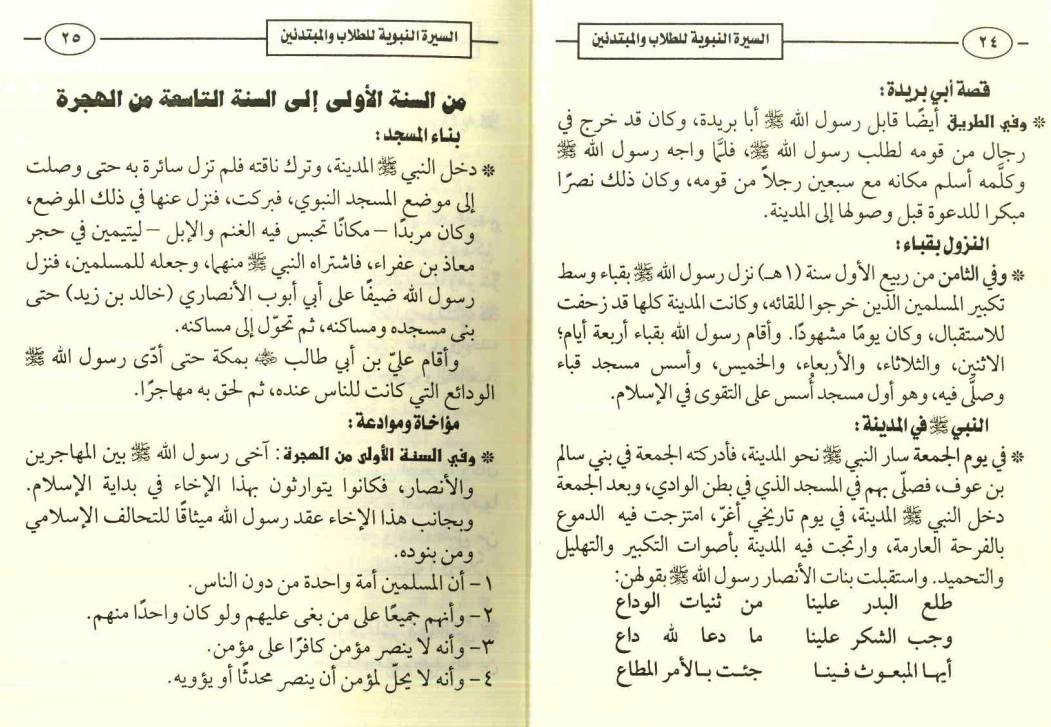 ٢٤
السيرة النبوية للطلاب والمبتدئين
قصة أبي بريدة:
* وفي الطريق أيضًا قابل رسول الله ﷺ أبا بريدة، وكان قد خرج في
رجال من قومه لطلب رسول الله ﷺ، فلمَّا واجه رسول الله ﷺ
وكلَّمه أسلم مكانه مع سبعين رجلاً من قومه، وكان ذلك نصرًا
مبكرا للدعوة قبل وصولها إلى المدينة.
النزول بقباء:
* وفي الثامن من ربيع الأول سنة (١هـ) نزل رسول الله ﷺ بقباء وسط
تكبير المسلمين الذين خرجوا للقائه، وكانت المدينة كلها قد زحفت
للاستقبال، وكان يومًا مشهودًا. وأقام رسول الله بقباء أربعة أيام؛
الاثنين، والثلاثاء، والأربعاء، والخميس، وأسس مسجد قباء
وصلَّى فيه، وهو أول مسجد أُسس على التقوى في الإسلام.
النبي ﷺ في المدينة:
* في يوم الجمعة سار النبي ﷺ نحو المدينة، فأدركته الجمعة في بني سالم
بن عوف، فصلّى بهم في المسجد الذي في بطن الوادي، وبعد الجمعة
دخل النبي ﷺ المدينة، في يوم تاريخي أغرّ، امتزجت فيه الدموع
بالفرحة العارمة، وارتجت فيه المدينة بأصوات التكبير والتهليل
والتحميد. واستقبلت بنات الأنصار رسول الله ﷺ بقولهن:
طلع البدر علينا من ثنيات الوداع
وجب الشكر علينا ما دعا لله داع
أيها المبعوث فينا جئت بالأمر المطاع
السيرة النبوية للطلاب والمبتدئين
٢٥
من السنة الأولى إلى السنة التاسعة من الهجرة
بناء المسجد:
* دخل النبي ﷺ المدينة، وترك ناقته فلم تزل سائرة به حتى وصلت
إلى موضع المسجد النبوي، فبركت، فنزل عنها في ذلك الموضع،
وكان مربدًا – مكانًا تحبس فيه الغنم والإبل – ليتيمين في حجر
معاذ بن عفراء، فاشتراه النبي ﷺ منهما، وجعله للمسلمين، فنزل
رسول الله ضيفًا على أبي أيوب الأنصاري (خالد بن زيد) حتى
بنى مسجده ومساكنه، ثم تحوّل إلى مساكنه.
وأقام عليّ بن أبي طالب ﵁ بمكة حتى أدّى رسول الله ﷺ
الودائع التي كانت للناس عنده، ثم لحق به مهاجرًا.
مؤاخاة وموادعة:
* وفي السنة الأولى من الهجرة: آخى رسول الله ﷺ بين المهاجرين
والأنصار، فكانوا يتوارثون بهذا الإخاء في بداية الإسلام.
وبجانب هذا الإخاء عقد رسول الله ميثاقًا للتحالف الإسلامي
ومن بنوده.
١- أن المسلمين أمة واحدة من دون الناس.
٢- وأنهم جميعًا على من بغى عليهم ولو كان واحدًا منهم.
٣- وأنه لا ينصر مؤمن كافرًا على مؤمن.
٤- وأنه لا يحلّ لمؤمن أن ينصر محدثًا أو يؤويه.